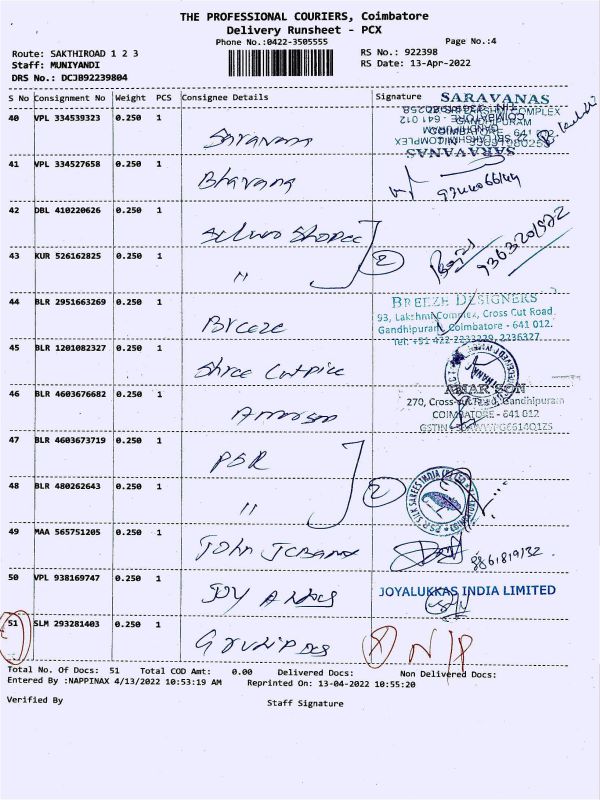 THE PROFESSIONAL COURIERS, Coimbatore
Delivery Runsheet - PCX
Phone No.:0422-3505555
Page No.:4
Route: SAKTHIROAD 1 2 3
RS No.: 922398
Staff: MUNIYANDI
RS Date: 13-Apr-2022
DRS No.: DCJB92239804
S No Consignment No Weight PCS Consignee Details Signature
SARAVANAS
40 VPL 334539323 0.250 1 Saravana
SARAVANAS
41 VPL 334527658 0.250 1 Bhavana
42 DBL 410220626 0.250 1 Selvas Shopee
2
43 KUR 526162825 0.250 1 "
9363201972
BREEZE DESIGNERS
44 BLR 2951663269 0.250 1 Breeze
93, Lakshmi Complex, Cross Cut Road,
Gandhipuram, Coimbatore - 641 012.
45 BLR 1201082327 0.250 1 Shree Cutpiece
AMAR SON
46 BLR 4603676682 0.250 1 Amarson
270, Cross-Cut Road, Gandhipuram
COIMBATORE - 641 012
47 BLR 4603673719 0.250 1 PSR
2
PSR SILK SAREES INDIA
48 BLR 480262643 0.250 1 "
49 MAA 565751205 0.250 1 John
8861819132
50 VPL 938169747 0.250 1 Joy
JOYALUKKAS INDIA LIMITED
51 SLM 293281403 0.250 1
N/P
Total No. Of Docs: 51 Total COD Amt: 0.00 Delivered Docs: Non Delivered Docs:
Entered By :NAPPINAX 4/13/2022 10:53:19 AM Reprinted On: 13-04-2022 10:55:20
Verified By
Staff Signature